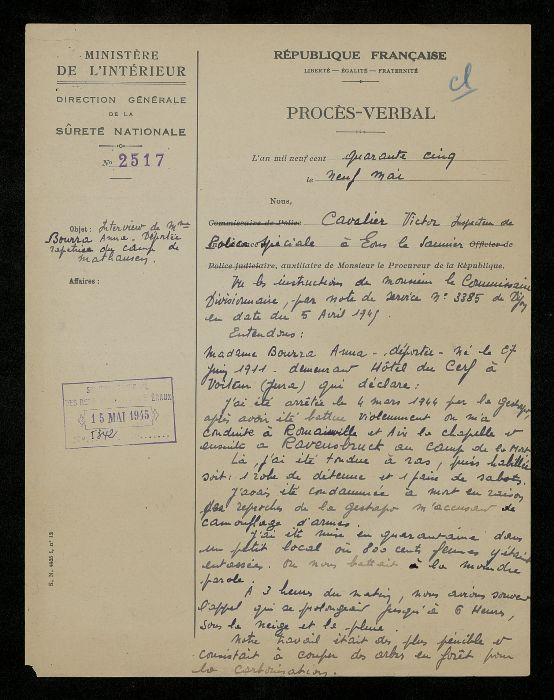 MINISTÈRE
DE L'INTÉRIEUR
DIRECTION GÉNÉRALE
DE LA
SÛRETÉ NATIONALE
No 2517
Objet : Interview de Mme
Bourra Anna - Déportée
rapatriée du camp de
mathausen.
Affaires :
15 MAI 1945
5842
S. N. 4625 I, n° 12
RÉPUBLIQUE FRANÇAISE
LIBERTÉ — ÉGALITÉ — FRATERNITÉ
cl
PROCÈS-VERBAL
L'an mil neuf cent quarante cinq
le neuf mai
Nous,
Commissaire de Police Cavalier Victor Inspecteur de
Police Spéciale à Lons le Saunier Officier de
Police judiciaire, auxiliaire de Monsieur le Procureur de la République.
Vu les instructions de monsieur le Commissaire
Divisionnaire, par note de service N° 3385 de Dijon
en date du 5 Avril 1945
Entendons :
Madame Bourra Anna - déportée - Né le 27
juin 1911 - demeurant Hôtel du Cerf à
Voiteur (Jura) qui déclare :
J'ai été arrêtée le 4 mars 1944 par la Gestapo
après avoir été battue violemment on m'a
conduite à Romainville et Aix la chapelle et
ensuite à Ravensbruck au camp de la Mort
Là j'ai été tondue à ras, puis habillée
soit : 1 robe de détenue et 1 paire de sabots.
J'avais été condamnée à mort en raison
des reproches de la gestapo m'accusant de
camouflage d'armes.
J'ai été mise en quarantaine dans
un petit local où 800 cents femmes y étaient
entassées. On nous battait à la moindre
parole.
A 3 heures du matin, nous avions souvent
l'appel qui se prolongeait jusqu'à 6 heures,
sous la neige et la pluie.
Notre travail était des plus pénible et
consistait à couper des arbres en forêt pour
la carbonisation.